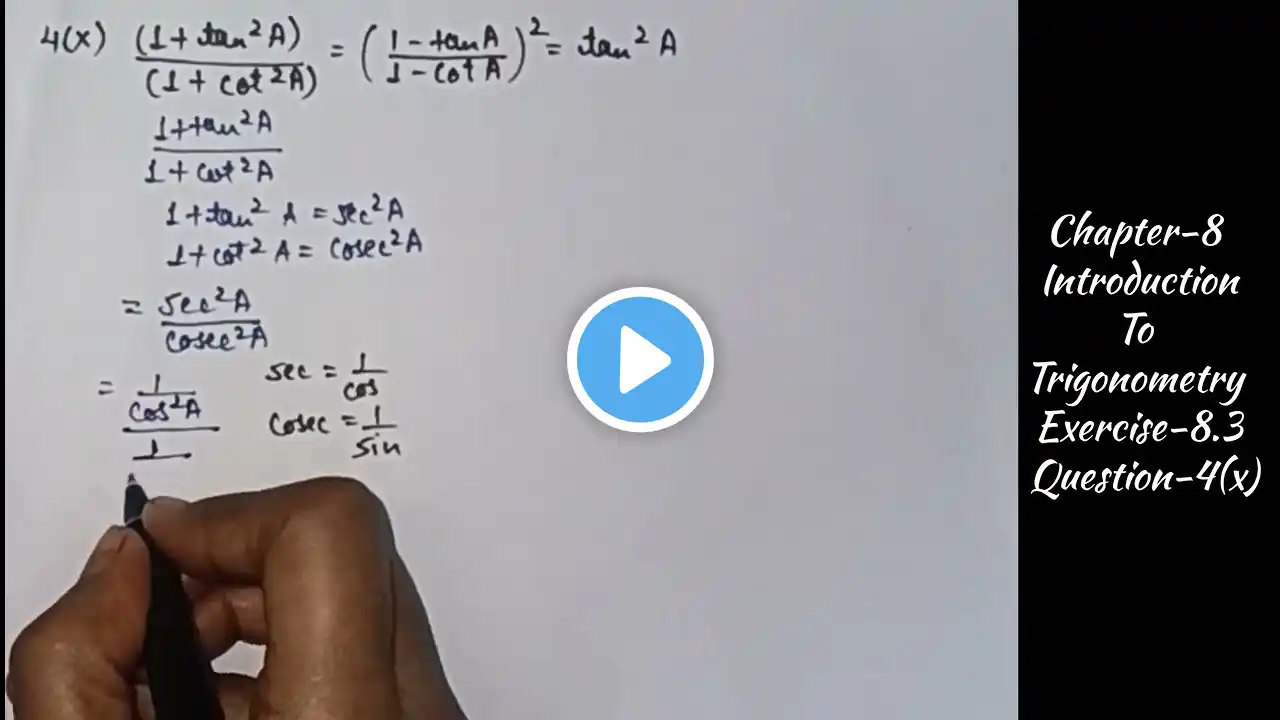 4(x) (1 + tan²A)/(1 + cot²A) = ((1 - tanA)/(1 - cotA))² = tan²A
1+tan²A
1 + cot²A
1 + tan² A = sec²A
1 + cot² A = cosec²A
= sec²A
cosec²A
= 1
cos²A
1
sec = 1/cos
cosec = 1/sin
Chapter-8
Introduction
To
Trigonometry
Exercise-8.3
Question-4(x)